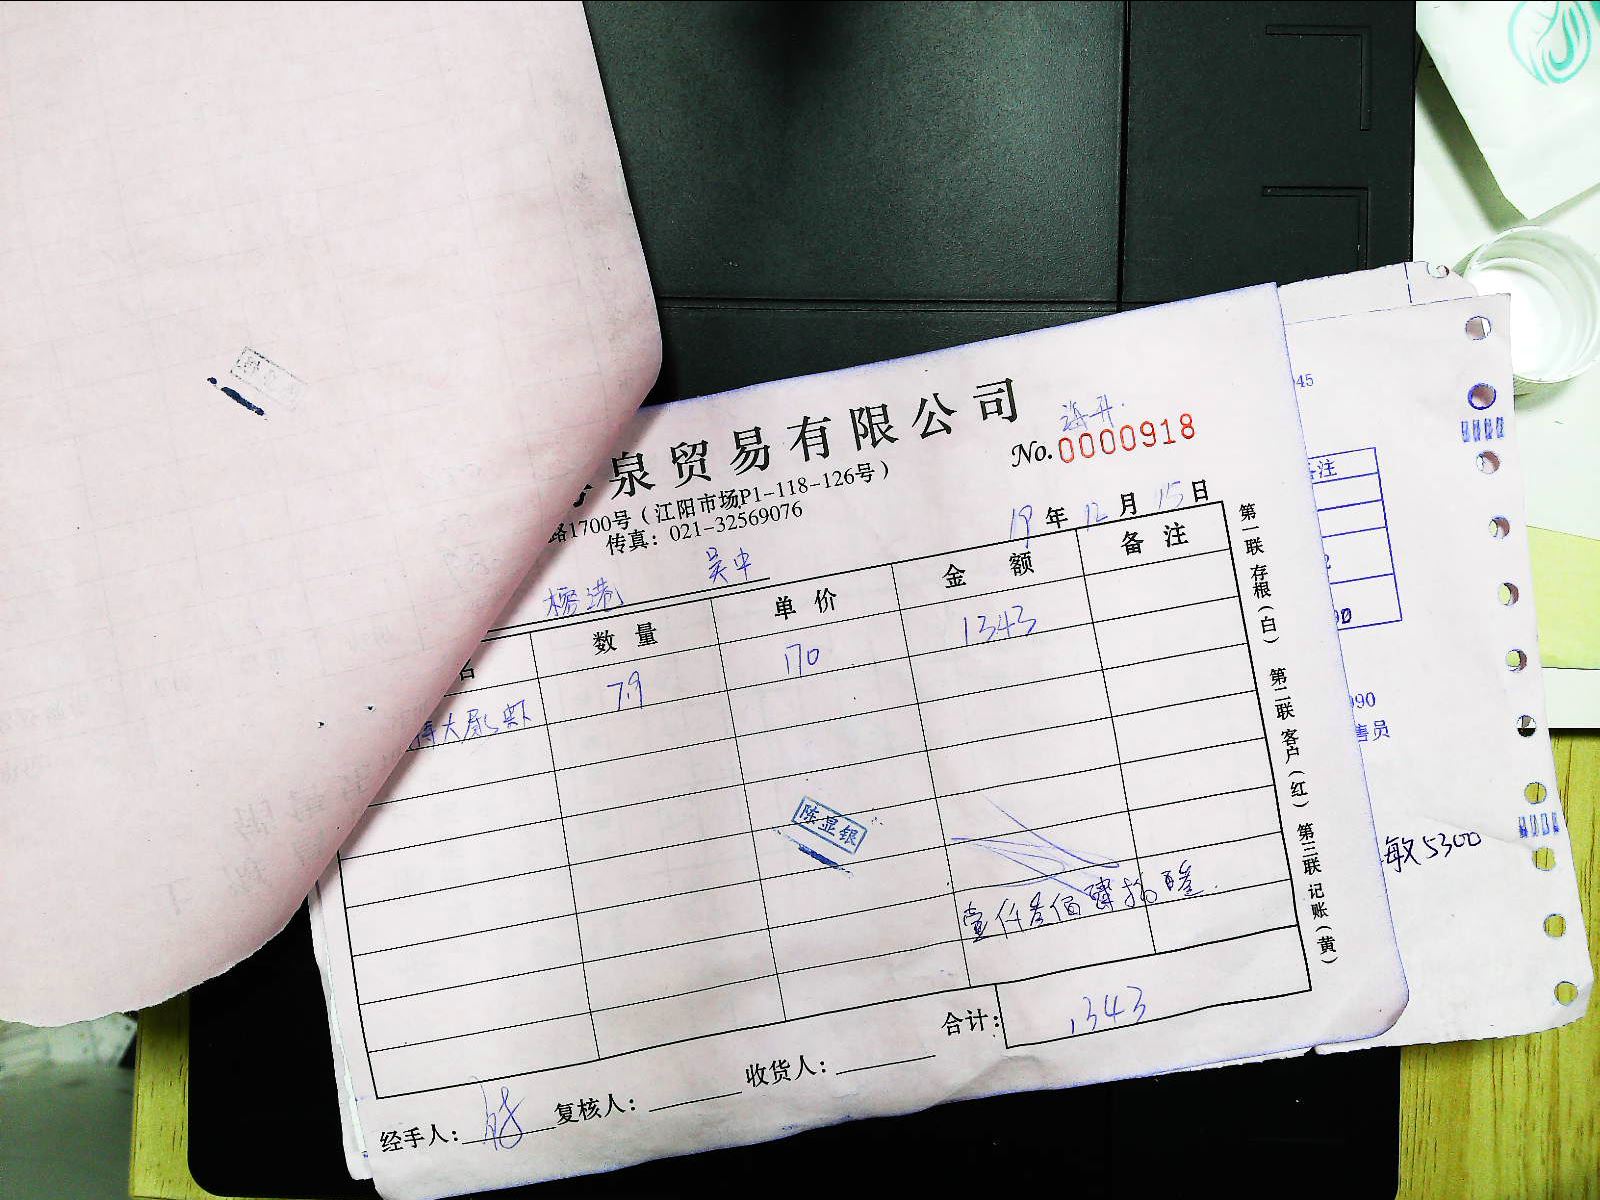 泉贸易有限公司
No.0000918
路1700号（江阳市场P1-118-126号）
传真：021-32569076
19年12月15日
吴中
名 数量 单价 金额 备注
大 虾 7.9 170 1343
陈显银
壹仟叁佰肆拾
合计：1343
经手人： 复核人： 收货人：
第一联 存根（白） 第二联 客户（红） 第三联 记账（黄）
45
注
90
售员
敏5300